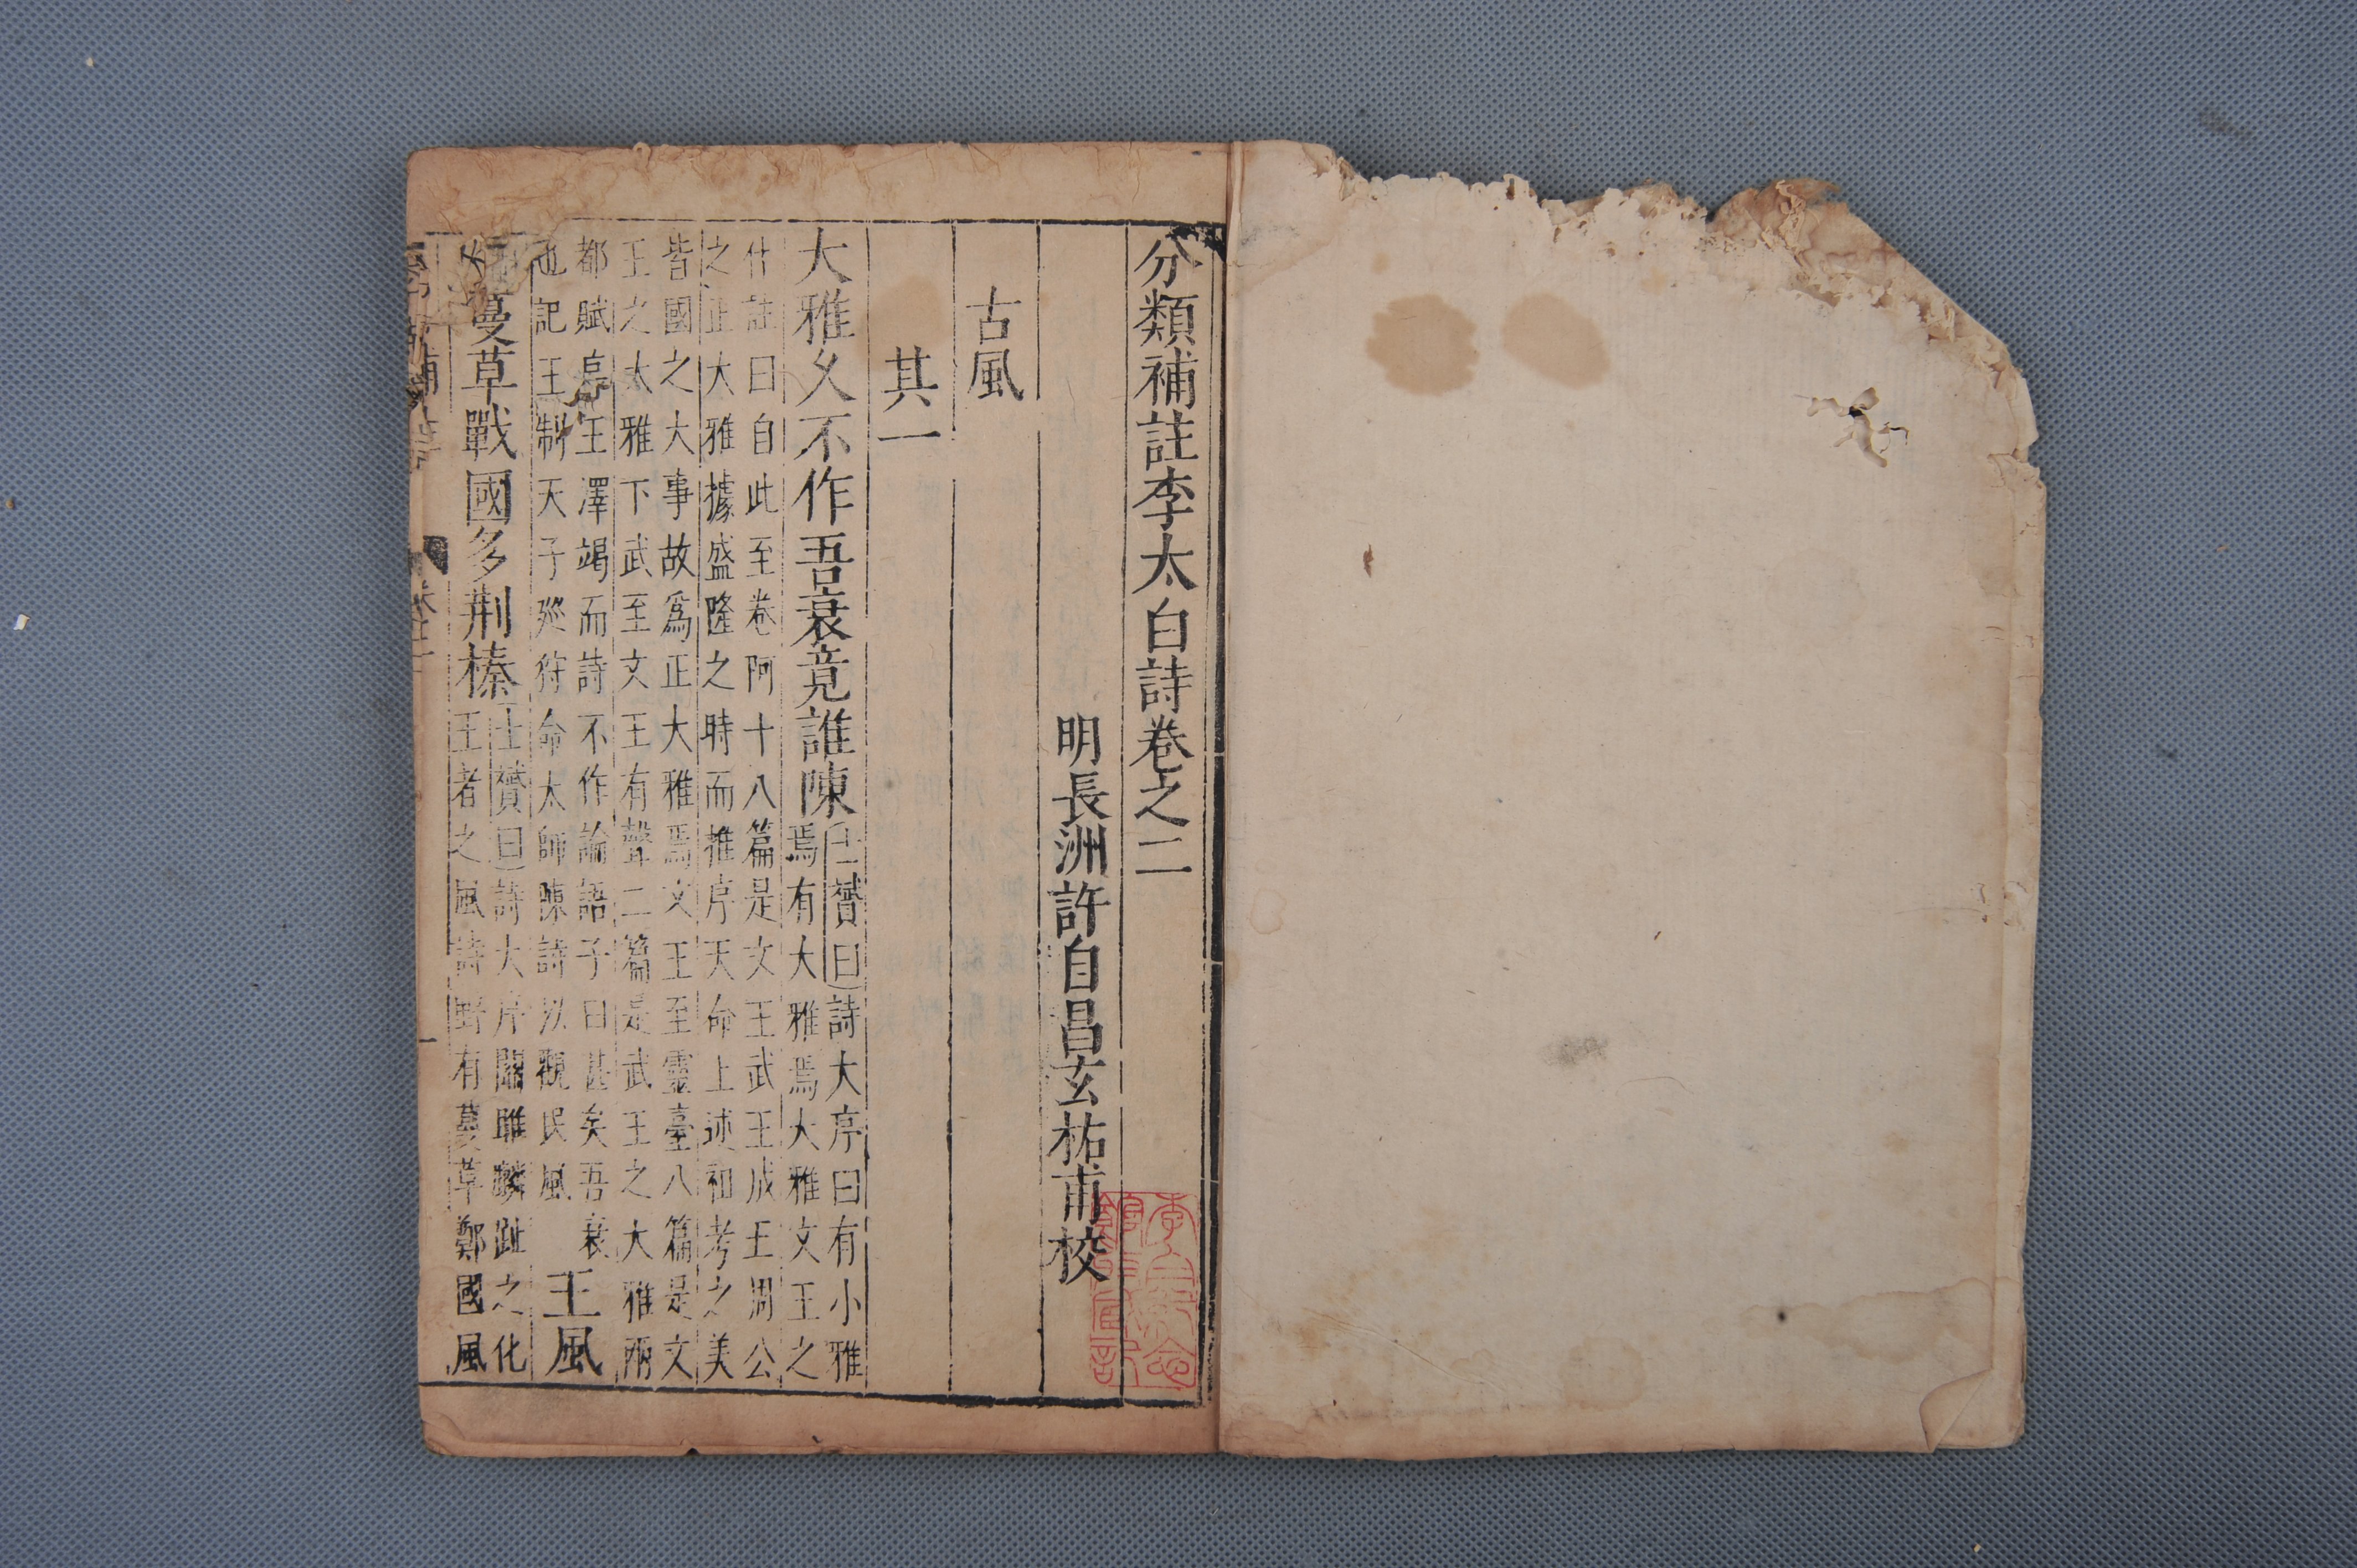 分類補註李太白詩卷之二
明長洲許自昌玄祐甫校
古風
其一
大雅久不作吾衰竟誰陳
士贇曰詩大序曰有小雅
焉有大雅焉大雅文王之
什註曰自此至卷阿十八篇是文王武王成王周公
之正大雅據盛隆之時而推序天命上述祖考之美
皆國之大事故爲正大雅焉文王至靈臺八篇是文
王之大雅下武至文王有聲二篇是武王之大雅兩
都賦序王澤竭而詩不作論語子曰甚矣吾衰
也記王制天子廵狩命太師陳詩以觀民風
王風
蔓草戰國多荆榛
士贇曰詩大序關雎麟趾之化
王者之風詩野有蔓草鄭國風